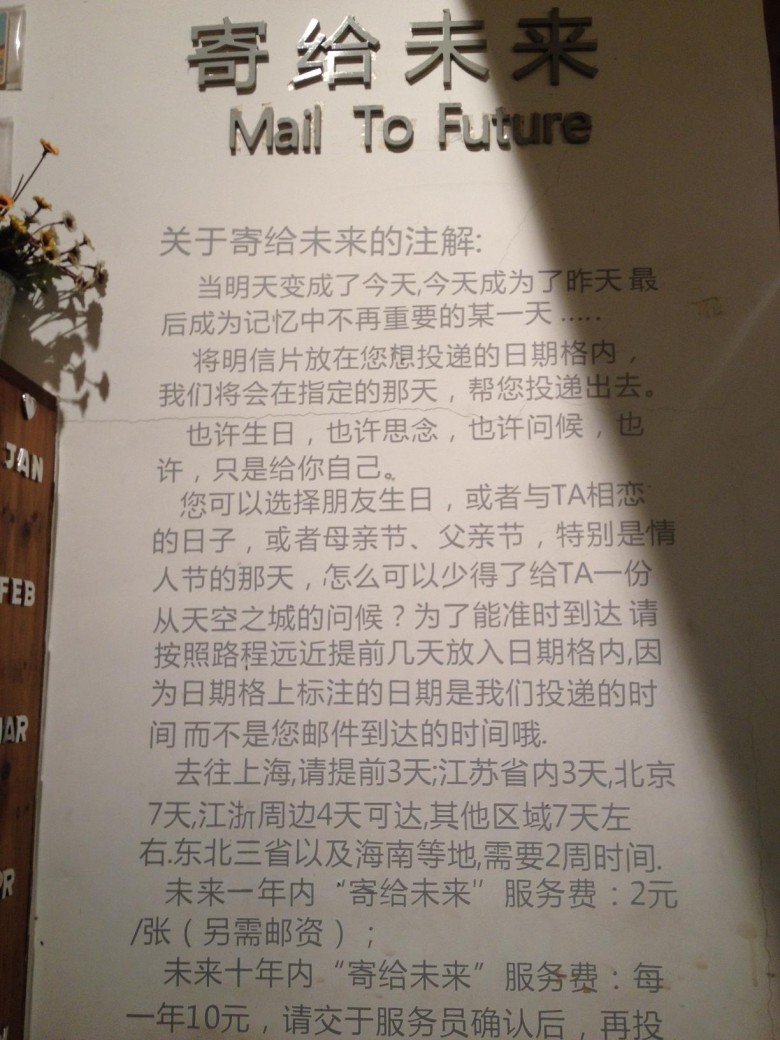 寄给未来
Mail To Future
关于寄给未来的注解:
当明天变成了今天,今天成为了昨天 最
后成为记忆中不再重要的某一天 .....
将明信片放在您想投递的日期格内，
我们将会在指定的那天，帮您投递出去。
也许生日，也许思念，也许问候，也
许，只是给你自己。
您可以选择朋友生日，或者与TA相恋
的日子，或者母亲节、父亲节，特别是情
人节的那天，怎么可以少得了给TA一份
从天空之城的问候？为了能准时到达 请
按照路程远近提前几天放入日期格内,因
为日期格上标注的日期是我们投递的时
间 而不是您邮件到达的时间哦.
去往上海,请提前3天;江苏省内3天,北京
7天,江浙周边4天可达,其他区域7天左
右.东北三省以及海南等地,需要2周时间.
未来一年内“寄给未来”服务费：2元
/张（另需邮资）；
未来十年内“寄给未来”服务费：每
一年10元，请交于服务员确认后，再投
JAN
FEB
AR
PR